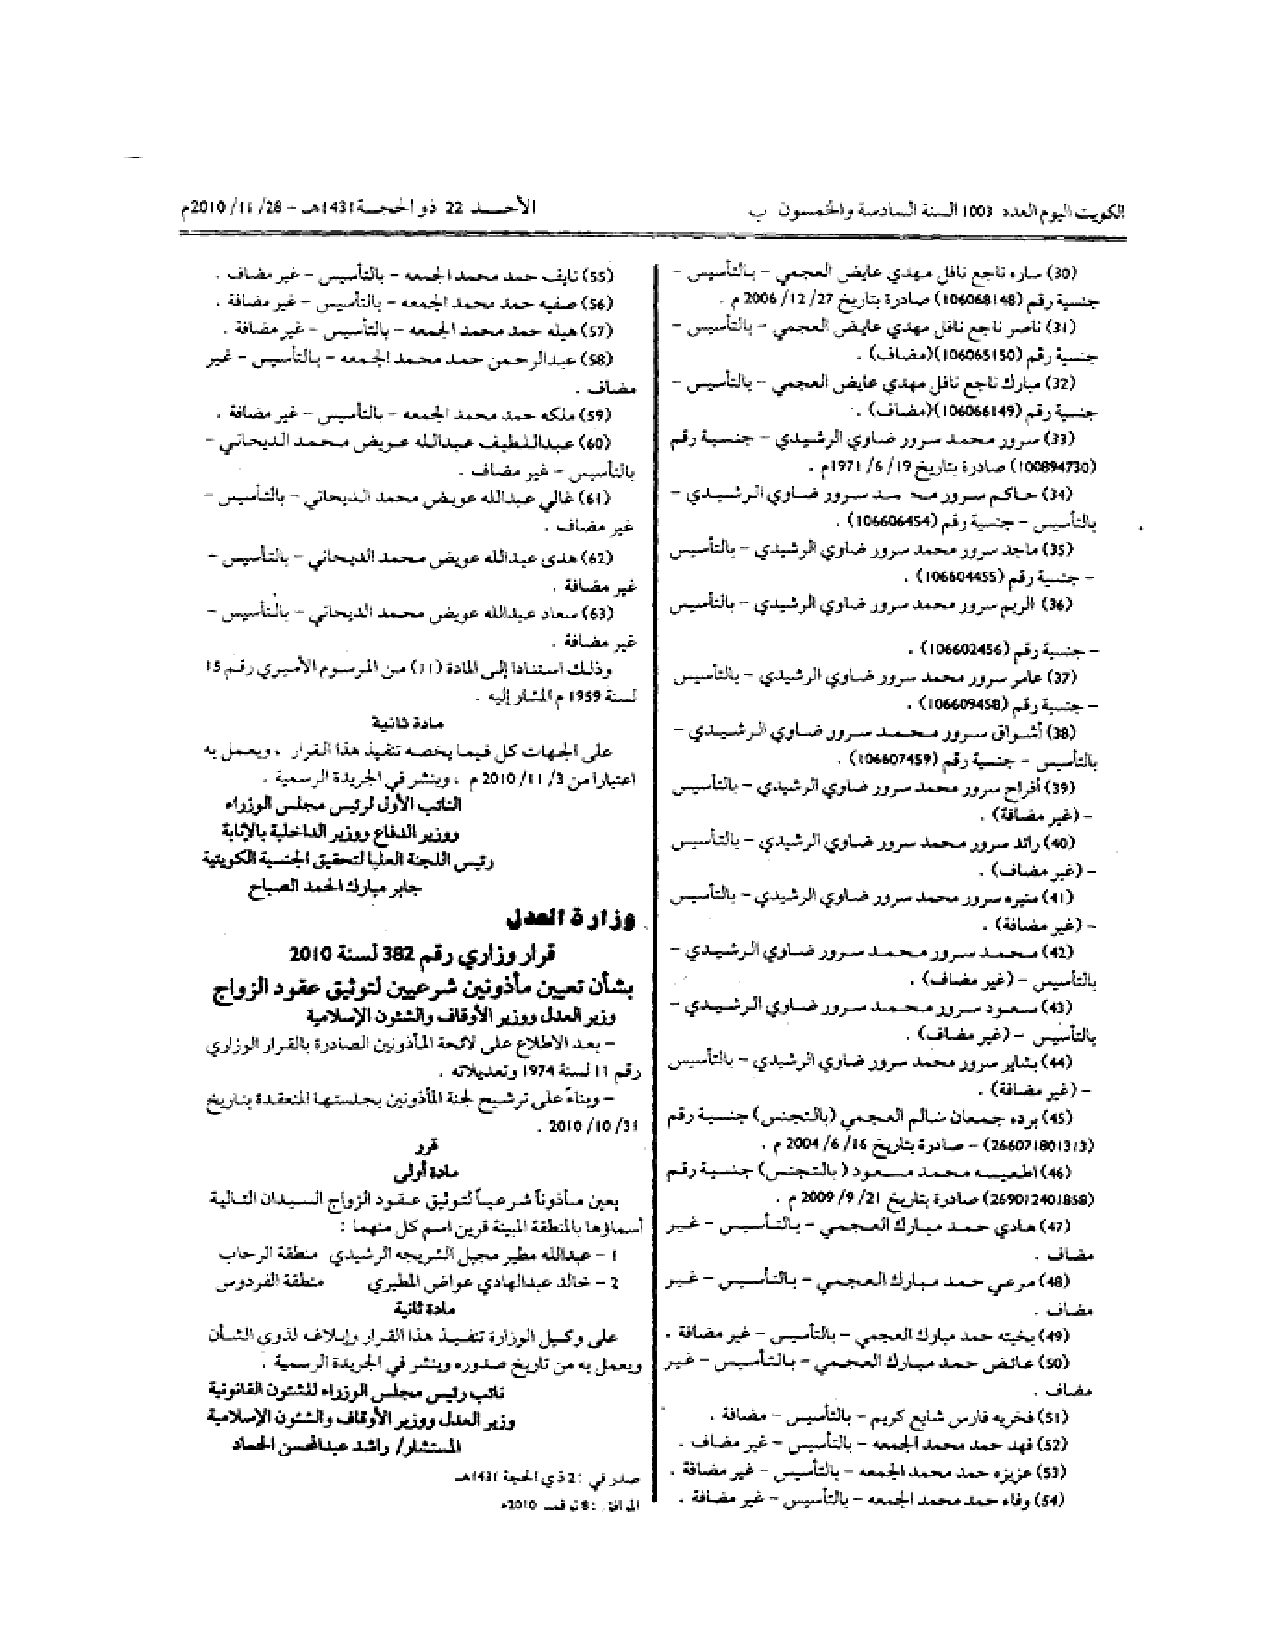 الكويت اليوم العدد 1003 السنة السادسة والخمسون ب
الأحـــد 22 ذو الحجـــة 1431هـ - 28/ 11/ 2010م
(30) ساره ناجع نافل مهدي عايض العجمي - بالتأسيس -
جنسية رقم (106068148) صادرة بتاريخ 27/ 12/ 2006 م .
(31) ناصر ناجع نافل مهدي عايض العجمي - بالتأسيس -
جنسية رقم (106065150)(مضاف) .
(32) مبارك ناجع نافل مهدي عايض العجمي - بالتأسيس -
جنسية رقم (106066149)(مضاف) .
(33) سرور محمد سرور ضاوي الرشيدي - جنسية رقم
(100894730) صادرة بتاريخ 19/ 6/ 1971م .
(34) حاكم سرور محمد سرور ضاوي الرشيدي -
بالتأسيس - جنسية رقم (106606454) .
(35) ماجد سرور محمد سرور ضاوي الرشيدي - بالتأسيس
- جنسية رقم (106604455) .
(36) الريم سرور محمد سرور ضاوي الرشيدي - بالتأسيس
- جنسية رقم (106602456) .
(37) عامر سرور محمد سرور ضاوي الرشيدي - بالتأسيس
- جنسية رقم (106609458) .
(38) أشواق سرور محمد سرور ضاوي الرشيدي -
بالتأسيس - جنسية رقم (106607459) .
(39) أفراح سرور محمد سرور ضاوي الرشيدي - بالتأسيس
- (غير مضافة) .
(40) رائد سرور محمد سرور ضاوي الرشيدي - بالتأسيس
- (غير مضاف) .
(41) منيره سرور محمد سرور ضاوي الرشيدي - بالتأسيس
- (غير مضافة) .
(42) محمد سرور محمد سرور ضاوي الرشيدي -
بالتأسيس - (غير مضاف) .
(43) سعود سرور محمد سرور ضاوي الرشيدي -
بالتأسيس - (غير مضاف) .
(44) بشاير سرور محمد سرور ضاوي الرشيدي - بالتأسيس
- (غير مضافة) .
(45) برده جمعان سالم العجمي (بالتجنس) جنسية رقم
(266071801313) - صادرة بتاريخ 16/ 6/ 2004 م .
(46) محمد مسعود (بالتجنس) جنسية رقم
(269012401858) صادرة بتاريخ 21/ 9/ 2009 م .
(47) هادي حمد مبارك العجمي - بالتأسيس - غير
مضاف .
(48) مرعي حمد مبارك العجمي - بالتأسيس - غير
مضاف .
(49) بخيته حمد مبارك العجمي - بالتأسيس - غير مضافة .
(50) عائض حمد مبارك العجمي - بالتأسيس - غير
مضاف .
(51) فخريه فارس شايع كريم - بالتأسيس - مضافة .
(52) فهد حمد محمد الجمعه - بالتأسيس - غير مضاف .
(53) عزيزه حمد محمد الجمعه - بالتأسيس - غير مضافة .
(54) وفاء حمد محمد الجمعه - بالتأسيس - غير مضافة .
(55) نايف حمد محمد الجمعه - بالتأسيس - غير مضاف .
(56) صفيه حمد محمد الجمعه - بالتأسيس - غير مضافة .
(57) هيله حمد محمد الجمعه - بالتأسيس - غير مضافة .
(58) عبدالرحمن حمد محمد الجمعه - بالتأسيس - غير
مضاف .
(59) ملكه حمد محمد الجمعه - بالتأسيس - غير مضافة .
(60) عبداللطيف عبدالله عويض محمد الديحاني -
بالتأسيس - غير مضاف .
(61) غالي عبدالله عويض محمد الديحاني - بالتأسيس -
غير مضاف .
(62) هدى عبدالله عويض محمد الديحاني - بالتأسيس -
غير مضافة .
(63) سعاد عبدالله عويض محمد الديحاني - بالتأسيس -
غير مضافة .
وذلك استنادا إلى المادة (11) من المرسوم الأميري رقم 15
لسنة 1959 م المشار إليه .
مادة ثانية
على الجهات كل فيما يخصه تنفيذ هذا القرار ، ويعمل به
اعتبارا من 3/ 11/ 2010 م ، وينشر في الجريدة الرسمية .
النائب الأول لرئيس مجلس الوزراء
ووزير الدفاع ووزير الداخلية بالإنابة
رئيس اللجنة العليا لتحقيق الجنسية الكويتية
جابر مبارك الحمد الصباح
وزارة العدل
قرار وزاري رقم 382 لسنة 2010
بشأن تعيين مأذونين شرعيين لتوثيق عقود الزواج
وزير العدل ووزير الأوقاف والشئون الإسلامية
- بعد الاطلاع على لائحة المأذونين الصادرة بالقرار الوزاري
رقم 11 لسنة 1974 وتعديلاته .
- وبناءً على ترشيح لجنة المأذونين بجلستها المنعقدة بتاريخ
31/ 10/ 2010 .
قرر
مادة أولى
يعين مأذوناً شرعياً لتوثيق عقود الزواج السيدان التالية
أسماؤها بالمنطقة المبينة قرين اسم كل منهما :
1 - عبدالله مطير مجبل الشريجه الرشيدي منطقة الرحاب
2 - خالد عبدالهادي عواض المطيري منطقة الفردوس
مادة ثانية
على وكيل الوزارة تنفيذ هذا القرار وإبلاغه لذوي الشأن
ويعمل به من تاريخ صدوره وينشر في الجريدة الرسمية .
نائب رئيس مجلس الوزراء للشئون القانونية
وزير العدل ووزير الأوقاف والشئون الإسلامية
المستشار/ راشد عبدالمحسن الحماد
صدر في : 2 ذي الحجة 1431هـ
الموافق : 8 نوفمبر 2010م